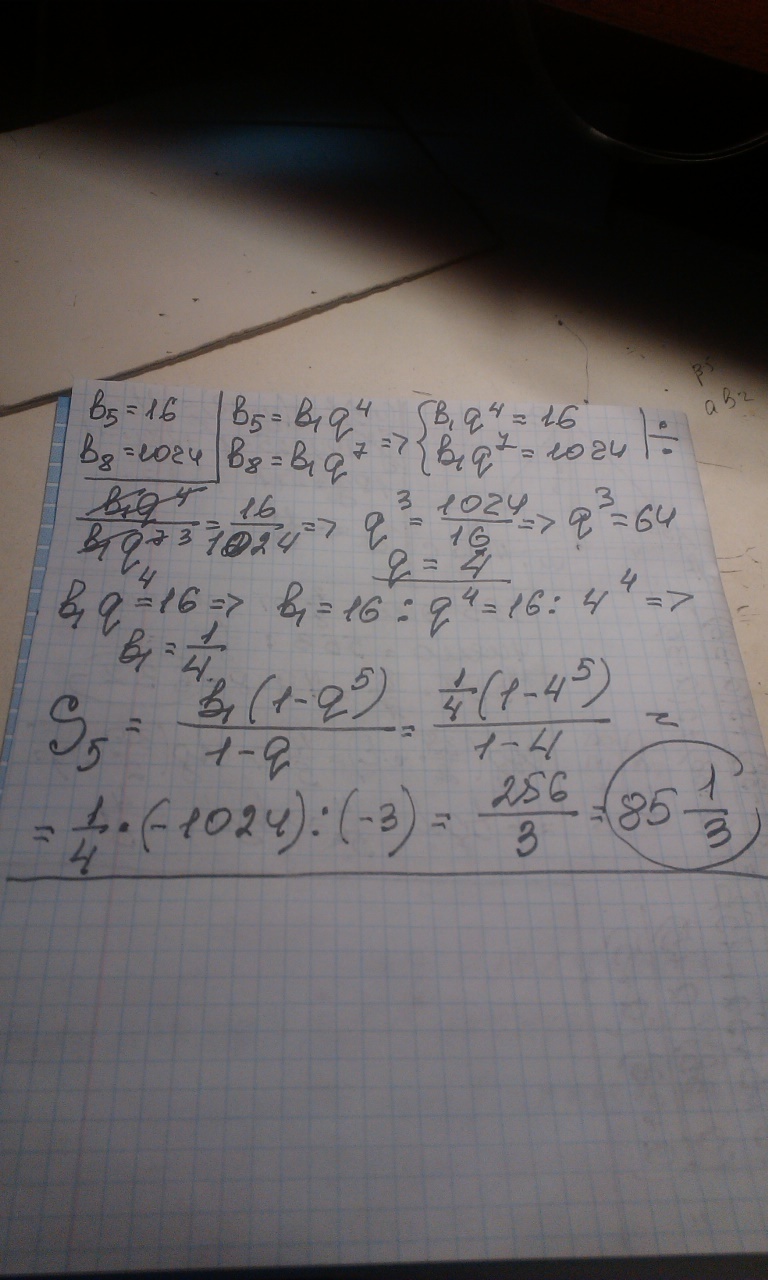 b₅ = 16 | b₅ = b₁q⁴ => { b₁q⁴ = 16 | ÷
b₈ = 1024 | b₈ = b₁q⁷ { b₁q⁷ = 1024
b₁q⁴/b₁q⁷ ³ = 16/1024 => q³ = 1024/16 => q³ = 64
q = 4
b₁q⁴ = 16 => b₁ = 16 : q⁴ = 16 : 4⁴ =>
b₁ = 1/4
S₅ = b₁(1-q⁵)/1-q = 1/4(1-4⁵)/1-4 =
= 1/4 · (-1024) : (-3) = 256/3 = 85 1/3